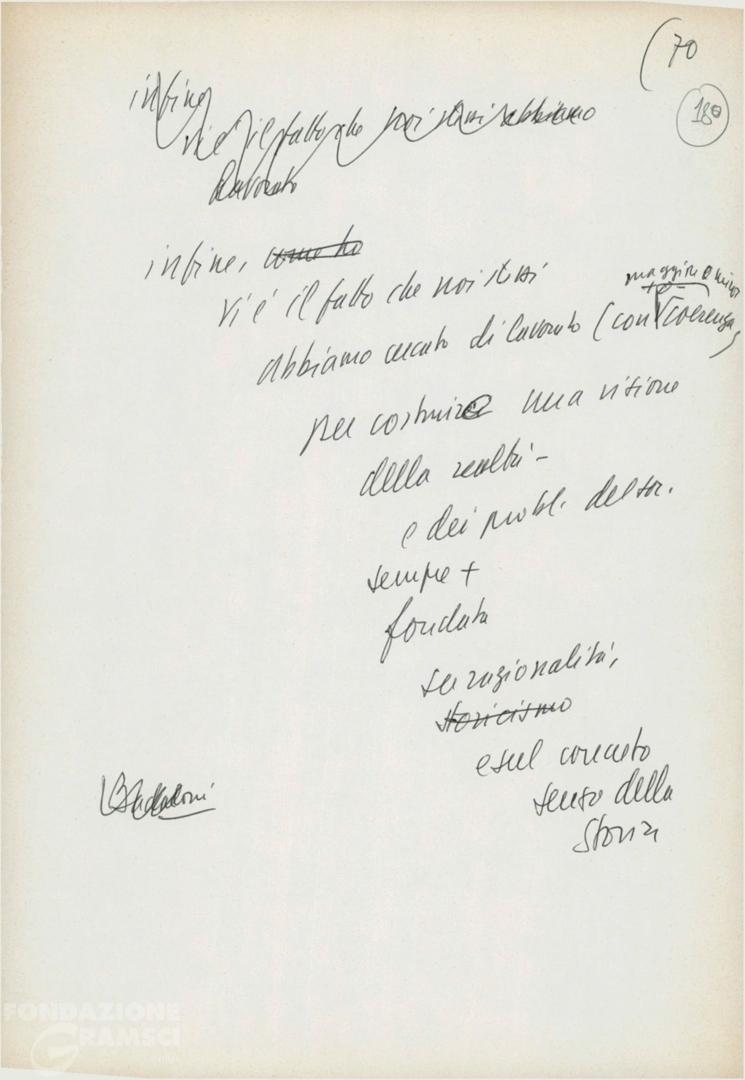 (70
180
infine,
vi è il fatto che noi stessi abbiamo
lavorato
infine, come ho
vi è il fatto che noi stessi
maggiore o minor
abbiamo cercato di lavorato (con coerenza)
per costruire una visione
della realtà -
e dei probl. del soc.
sempre +
fondata
su razionalità,
storicismo
e sul concreto
senso della
storia
Badaloni
FONDAZIONE
GRAMSCI